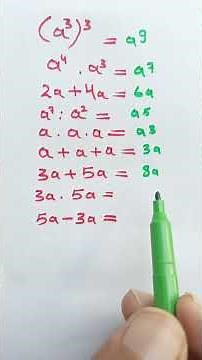 (a³)³ = a9
a⁴ . a³ = a7
2a + 4a = 6a
a⁷ : a² = a5
a . a . a = a3
a + a + a = 3a
3a + 5a = 8a
3a . 5a =
5a - 3a =